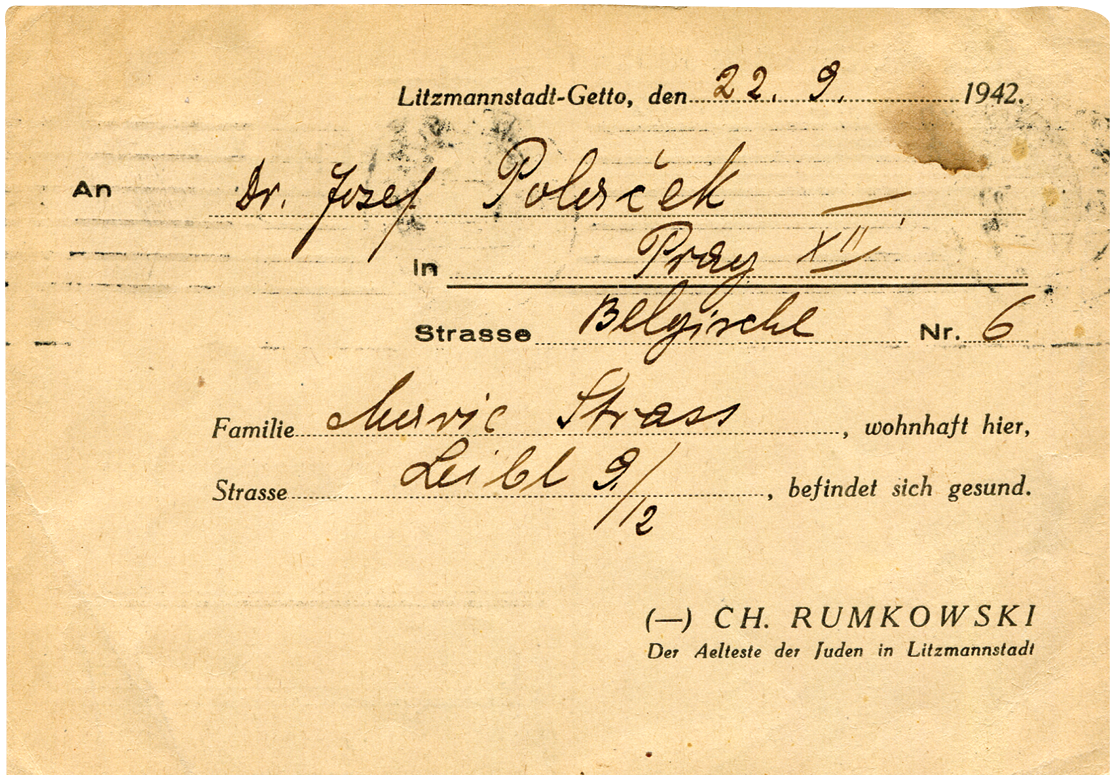 Litzmannstadt-Getto, den 22. 9. 1942.
An Dr. Josef Polaček
in Prag XII
Strasse Belgische Nr. 6
Familie Strass, wohnhaft hier,
Strasse Leibl 9/12, befindet sich gesund.
(—) CH. RUMKOWSKI
Der Aelteste der Juden in Litzmannstadt